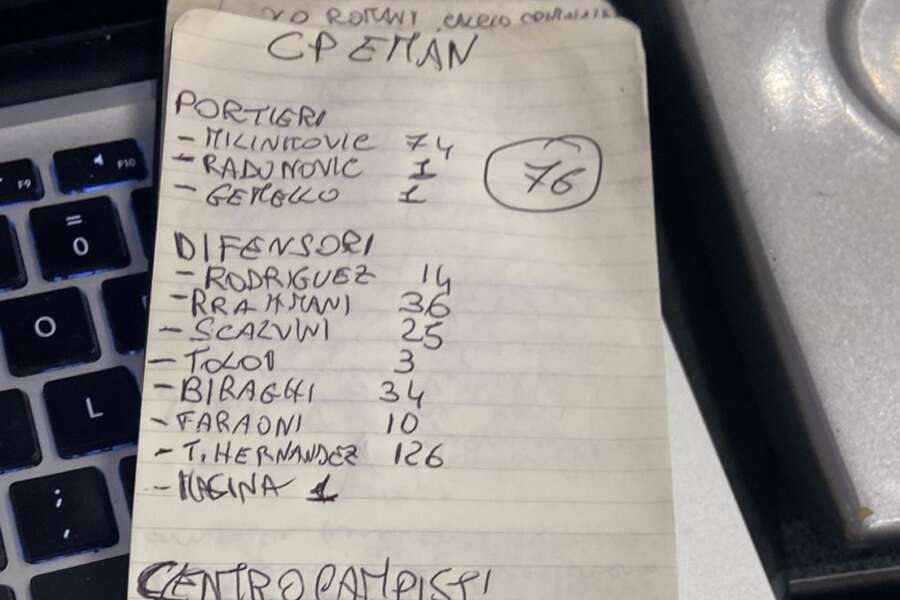 ROMANI CALCIO
CP EMAN
PORTIERI
- MILINKOVIC 74
- RADUNOVIC 1
- GEMELLO 1
76
DIFENSORI
- RODRIGUEZ 14
- RRAHMANI 36
- SCALVINI 25
- TOLOI 3
- BIRAGHI 34
- FARAONI 10
- T. HERNANDEZ 126
- MAGINA 1
CENTROCAMPISTI
F9
F10
=
0
O
L
;
,